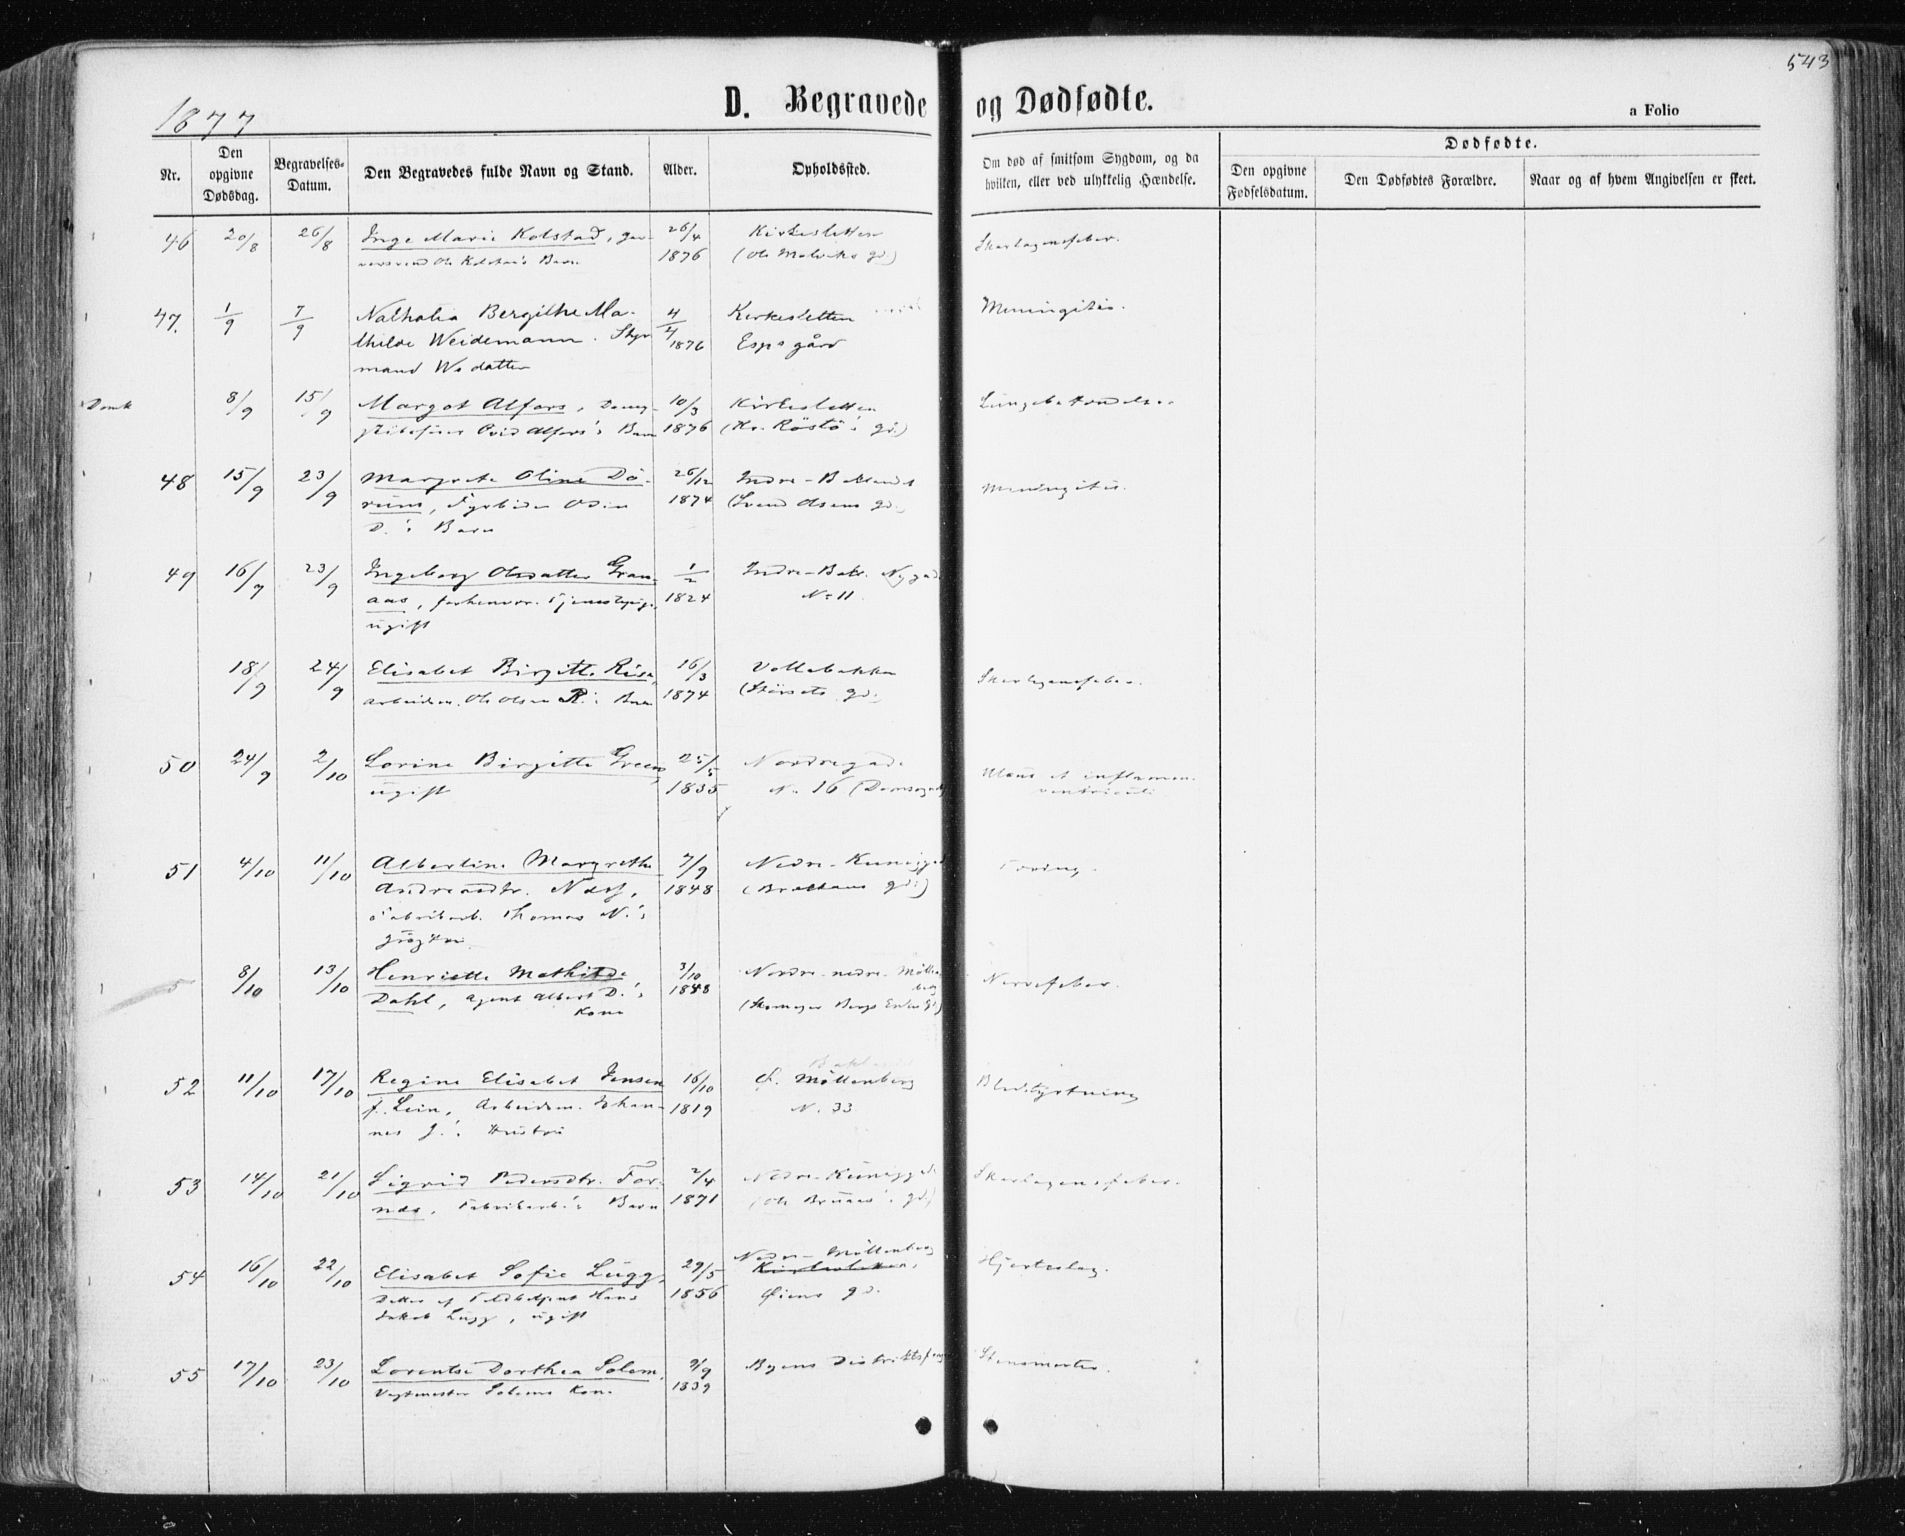 543
1877
D. Begravede og Dødfødte.
a Folio
Nr.
Den opgivne Dødsdag.
Begravelses-Datum.
Den Begravedes fulde Navn og Stand.
Alder.
Opholdssted.
Om død af smitsom Sygdom, og da hvilken, eller ved ulykkelig Hændelse.
Dødfødte.
Den opgivne Fødselsdatum.
Den Dødfødtes Forældre.
Naar og af hvem Angivelsen er skeet.
46 20/8 26/8 Inge Marie Kolstad, gar- 26/4 Kirkesletten Skarlagensfeber.
versvend Ole Kolstad's Barn 1876 (Ole Malviks gd.)
47. 1/9 7/9 Nathalia Bergithe Ma- 4/4 Kirkesletten Meningitis.
thilde Weidemann. Styr 1876 Esps gård
mand Ws datter
Domk 8/9 15/9 Margot Alfars, Damp- 10/3 Kirkesletten Lungebetændelse
Alfars's Barn 1876 Röstö's gd.)
48 15/9 23/9 Margrete Oline Dö- 26/12 Indre-Baklandet Meningitis.
rum, Fyrböder Odin 1874 (Svend Olsens gd.)
D.'s Barn
49 16/9 23/9 Ingeborg Olsdatter Gran- 1/2 Indre-Bakl. Nygade
aas, forhenvær. Tjenestepige, 1824 No 11.
ugift
18/9 24/9 Elisabet Birgitte Risa, 16/3 Vollabakken Skarlagensfeber.
arbeidsm. Ole Olsen R.'s Barn 1874 (Störsets gd.)
50 24/9 2/10 Lorine Birgitte Green, 25/5 Nordregade Ulcus et inflammat.
ugift 1835 N. 16 ventriculi
51 4/10 11/10 Albertine Margrethe 7/9 Nedre-Kuneigt Tæring.
Andreasdtr. Næss, 1848 (Brættans gd.)
Fabrikarb. Thomas N.'s
5 8/10 13/10 Henriette Mathilde 3/10 Nordre-nedre-Möllen Nervefeber.
berg
Dahl, agent Albert D.'s 1848 (Skomager Bergs Enkes gd)
Kone
Bakl
52 11/10 17/10 Regine Elisabet Jensen 16/10 Ø. Möllenberg Blodstyrtning
f. Lein, Arbeidsm. Johan- 1819 N. 33
nes J.'s Hustru
53 14/10 21/10 Sigrid Pedersdtr. For- 2/4 Nedre-Kuneiggt Skarlagensfeber.
næs, Fabrikarb.'s Barn 1871 (Ole Bruaas's gd.)
Nedre-Möllenberg
54 16/10 22/10 Elisabet Sofie Lugg, 29/5 Kirkesletten, Hjerteslag.
Datter af Toldbetjent Hans 1856 Øiens gd.
Jakob Lugg, ugift
55 17/10 23/10 Lorentse Dorthea Solem, 9/9 Byens Distriktsfengs Stensmerter.
Vagtmester Solems Kone 1839